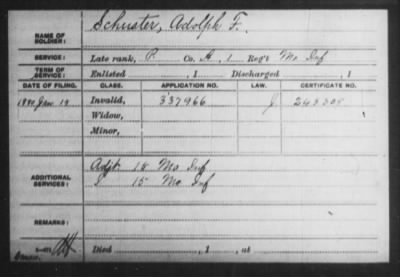 Schuster, Adolph F.
NAME OF SOLDIER:
SERVICE: Late rank, P. Co. A, 1 Reg't Mo Inf
TERM OF SERVICE: Enlisted , 1 Discharged , 1
DATE OF FILING. CLASS. APPLICATION NO. LAW. CERTIFICATE NO.
Jan. 19 Invalid, 337966 J
Widow,
Minor,
Adjt 15 Mo Inf
ADDITIONAL SERVICES: 15 Mo Inf
REMARKS:
Died , 1 , at